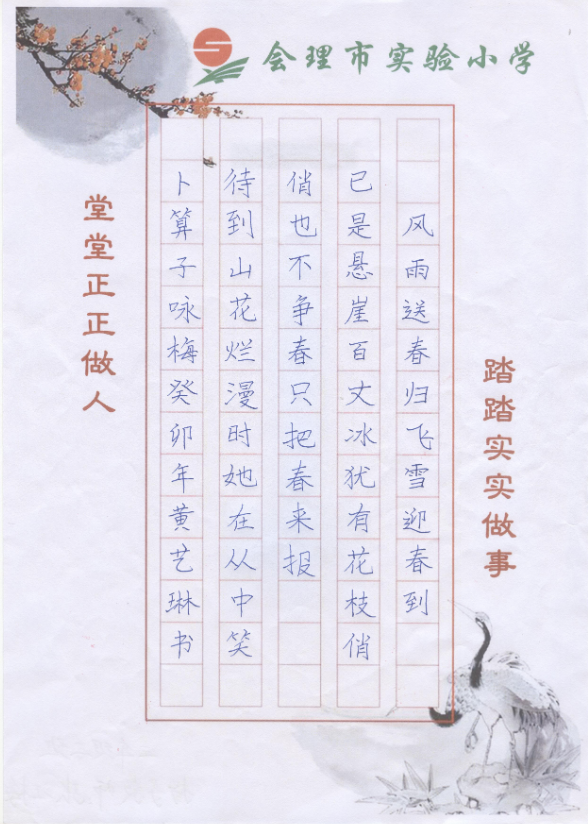 会理市实验小学
踏踏实实做事
风雨送春归飞雪迎春到
已是悬崖百丈冰犹有花枝俏
俏也不争春只把春来报
待到山花烂漫时她在丛中笑
卜算子咏梅癸卯年黄艺琳书
堂堂正正做人